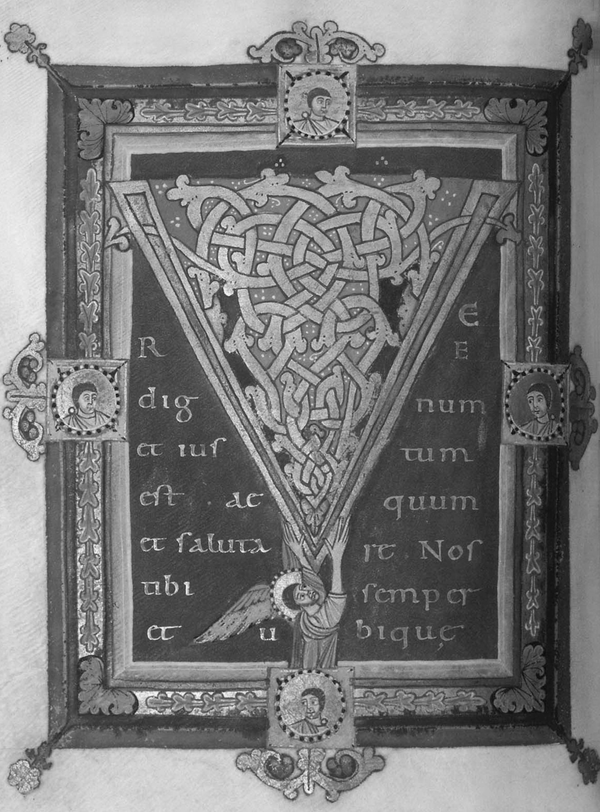 V E
R E
dig num
et ius tum
est · ae quum
et saluta re Nos
tibi semper
et u bique